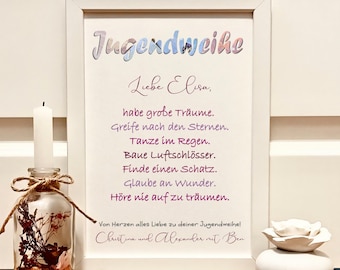 Jugendweihe
Liebe Elisa,
habe große Träume.
Greife nach den Sternen.
Tanze im Regen.
Baue Luftschlösser.
Finde einen Schatz.
Glaube an Wunder.
Höre nie auf zu träumen.
Von Herzen alles Liebe zu deiner Jugendweihe!
Christina und Alexander mit Ben